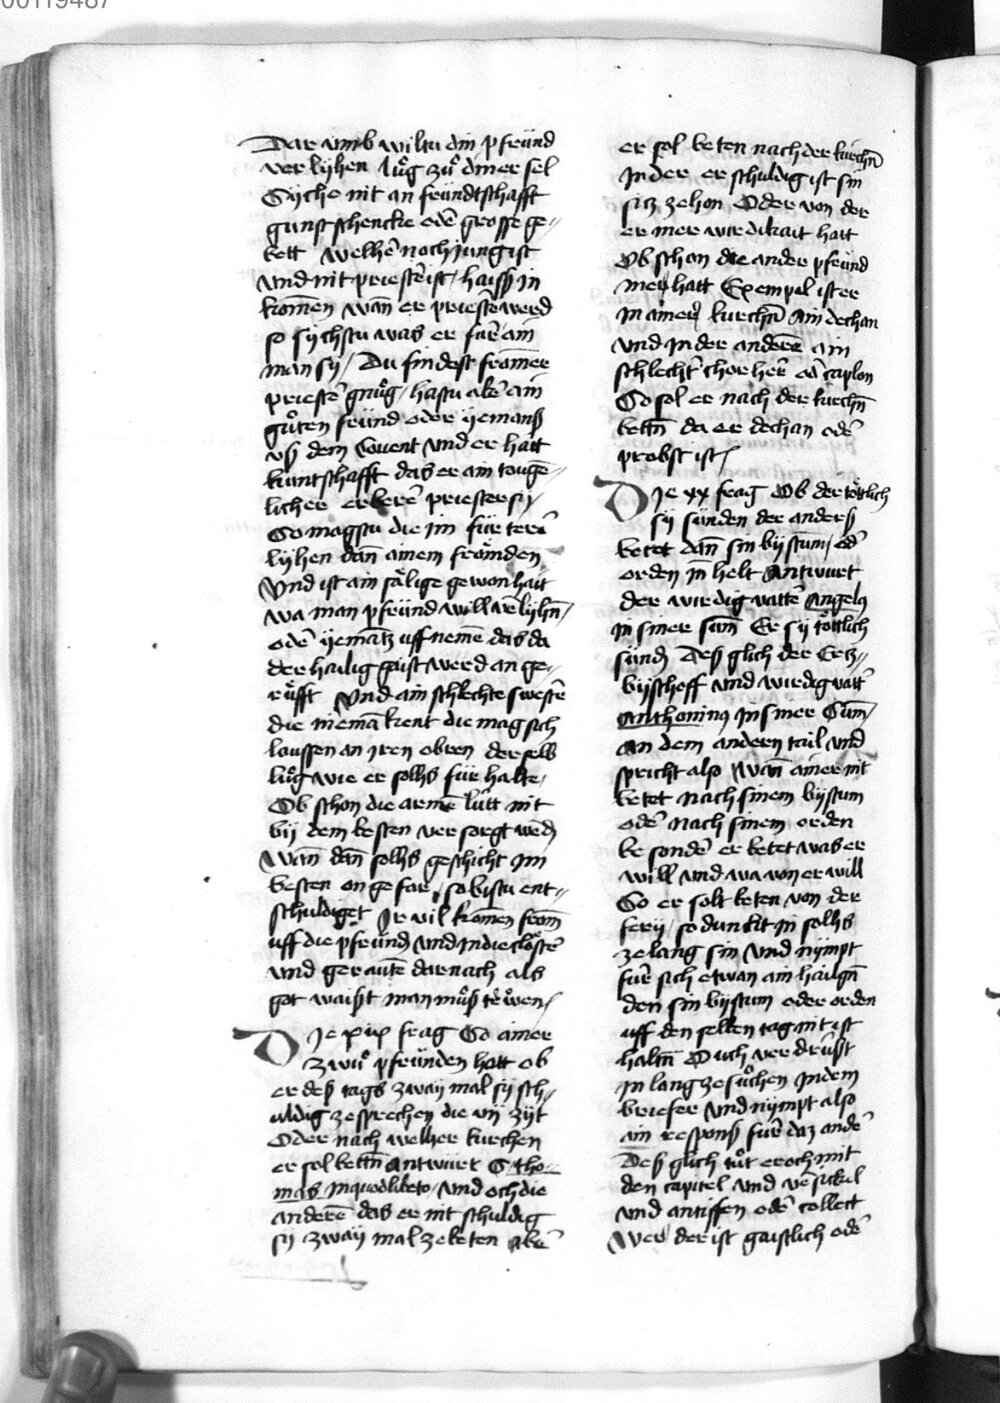 00119487
Dar vmb wiltu din pfrůnd
verlyhen lůg zů diner sel
Syche nit an fründtschafft
gunst schencke odẽ grosse ge-
bett welhẽ noch jung ist
vnd nit priestẽ ist haiss in
komen wan er priestẽ werd
so sychstu was er fur ain
man sy / Du findest fromer
priestẽ gnůg / hastu abẽ ain
gůten fründ oder yemanß
vß dem Couent vnd er hatt
kuntschafft das er ain tougẽ-
licher erberẽ priester sy
So magstu die im für terẽ
lyhen dan ainem frömden
Vnd ist ain sälige gewonhait
wa man pfründ will vẽlyhñ
odẽ yematz uff nemẽ das da
der hailig gaist werd an ge-
rüfft Vnd ain schlechte swestẽ
die niemã kent die mag sich
laussen an iren obren der selb
lůg wie er sollis für halte
Ob schon die armẽ lütt nit
by dem besten versorgt wẽd
Wañ dañ sollis geschicht im
besten ongefar so bistu ent-
schuldiget Ir vil komen from̃
uff die pfründ vnd in die clöstẽ
vnd gerautẽ darnach als
got waißt man můß trůwen /
Die xix frag So ainer
zwů pfründen hatt ob
er deß tags zway mal sy sch-
uldig ze sprechen die vij zyt
Oder nach welher kurchen
er sol bettñ Antwurt S tho-
mas in quodlibeto / vnd och die
anderẽ das er nit schuldig
sy zway mal ze beten abẽ
er sol beten nach der kurchñ
In der er schuldig ist sin
sitz ze hon Oder von der
er mer wirdikait hatt
Ob schon die ander pfründ
mer hatt Exempel ist er
in ainer kurchñ ain dechan
vnd in der anderẽ ain
schlechtẽ chorherẽ oð caplon
So sol er nach der kurchñ
bettñ da er dechan odẽ
probst ist /
Die xx frag Ob der töttlich
sy sünden der anderß
betet dañ sin bystum / oð
orden in helt Antwurt
der wirdig vattẽ Angelus
in siner sum̃ Er sy töttlich
sünd Deß glich der Ertz-
byscheff vnd wirdig vattẽ
Anthoninus in siner Sum̃
an dem andern tail vnd
spricht also Wañ ainer nit
betet nach sinem bystum
odẽ nach sinem orden
besondẽ er betet was er
will vnd wa von er will
So er solt beten von der
fery / so dunkt in sollis
ze lang sin vnd nympt
für sich etwan ain hailgñ
den sin bystum oder orden
uff den selben tag nit ist
haltñ Ouch verdrüsst
in lang ze sůchen in dem
briefer vnd nympt also
ain responß für daz andẽ
Deß glich tůt er och mit
den capitel vnd vẽsickul
vnd antiffen odẽ collect
Wer der ist gaistlich odẽ